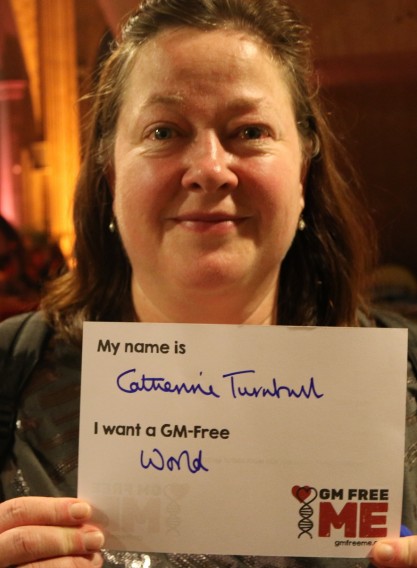 My name is
Catherine Turnbull
I want a GM-Free
World
GM FREE
ME